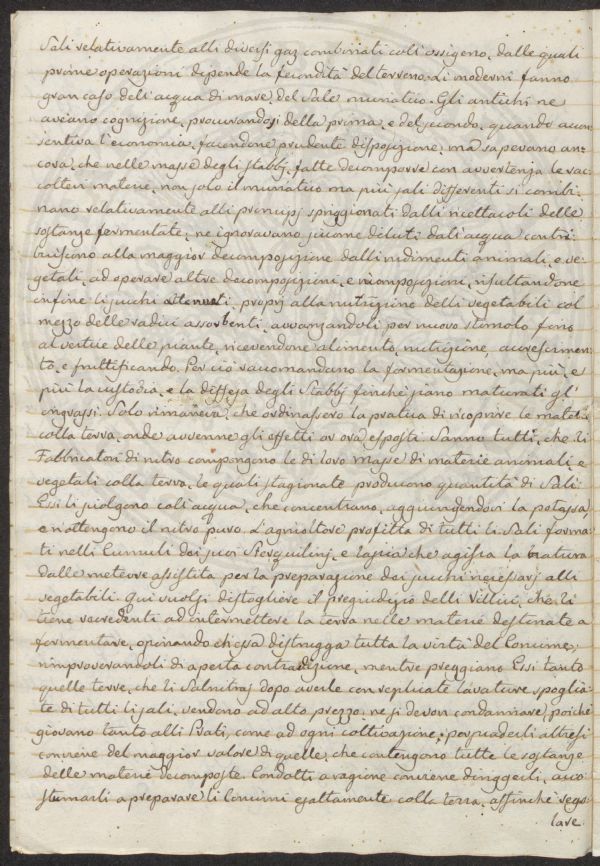 Sali relativamente alli diversi gaz combinati coll'ossigeno, dalle quali
prime operazioni dipende la fecondità del terreno. i moderni fanno
gran caso dell'acqua di mare, del Sale muriatico. Gli antichi ne
aveano cognizione, procurandosi della prima, e del secondo, quando accon-
sentiva l'economia, facendone prudente disposizione, ma sapevano an-
cora, che nelle masse degli stabbj, fatte decomporre con avvertenza le rac-
colte materie, non solo il muriatico ma più sali differenti si combi-
nano relativamente alli principj spriggionati dalli ricettacoli delle
sostanze fermentate, ne ignoravano siccome diluti dall'acqua contri-
buiscono alla maggior decomposizione dalli rudimenti animali, e ve-
getali, ad operare altre decomposizioni, e ricomposizioni, risultandone
infine li succhi attenuati, proprj alla nutrizione delli vegetabili col
mezzo delle radici assorbenti, avvanzandoli per nuovo stimolo fino
al vertice delle piante, ricevendone alimento, nutrizione, accrescimen-
to, e fruttificando. Per ciò raccomandano la fermentazione, ma più, e
più la custodia, e la diffesa degli Stabbj finchè siano maturati gl'
ingrassi. Solo rimaneva, che ordinassero la pratica di ricoprire le materie
colla terra, onde avvenne gli effetti or ora esposti. Sanno tutti, che li
Fabbricatori di nitro compongono le di loro masse di materie animali, e
vegetali colla terra, le quali stagionate producono quantità di Sali.
Essi li sciolgono coll'acqua, che concentrano, aggiungendovi la potassa,
e n'ottengono il nitro puro. L'agricoltore profitta di tutti li Sali forma-
ti nelli Cumuli dei suoi Sterquilinj, e lascia che agisca la natura
dalle meteore assistita per la preparazione dei succhi necessarj alli
vegetabili. Qui vuolsi distogliere il pregiudizio delli Villici, che li
tiene renitenti ad intermettere la terra nelle materie destinate a
fermentare, opinando ch'essa distrugga tutta la virtù del Concime,
rimproverandoli di aperta contradizione, mentre preggiano Essi tanto
quelle terre, che li Salnitraj dopo averle con replicate lavature spoglia-
te di tutti li sali, vendono ad alto prezzo, ne si devon condannare, poichè
giovano tanto alli Prati, come ad ogni coltivazione; persuaderli altresì
conviene del maggior valore di quelle, che contengono tutte le sostanze
delle materie decomposte. Condotti a ragione conviene dirigerli, accos-
tumarli a preparare li Concimi esattamente colla terra, affinchè rego-
lare